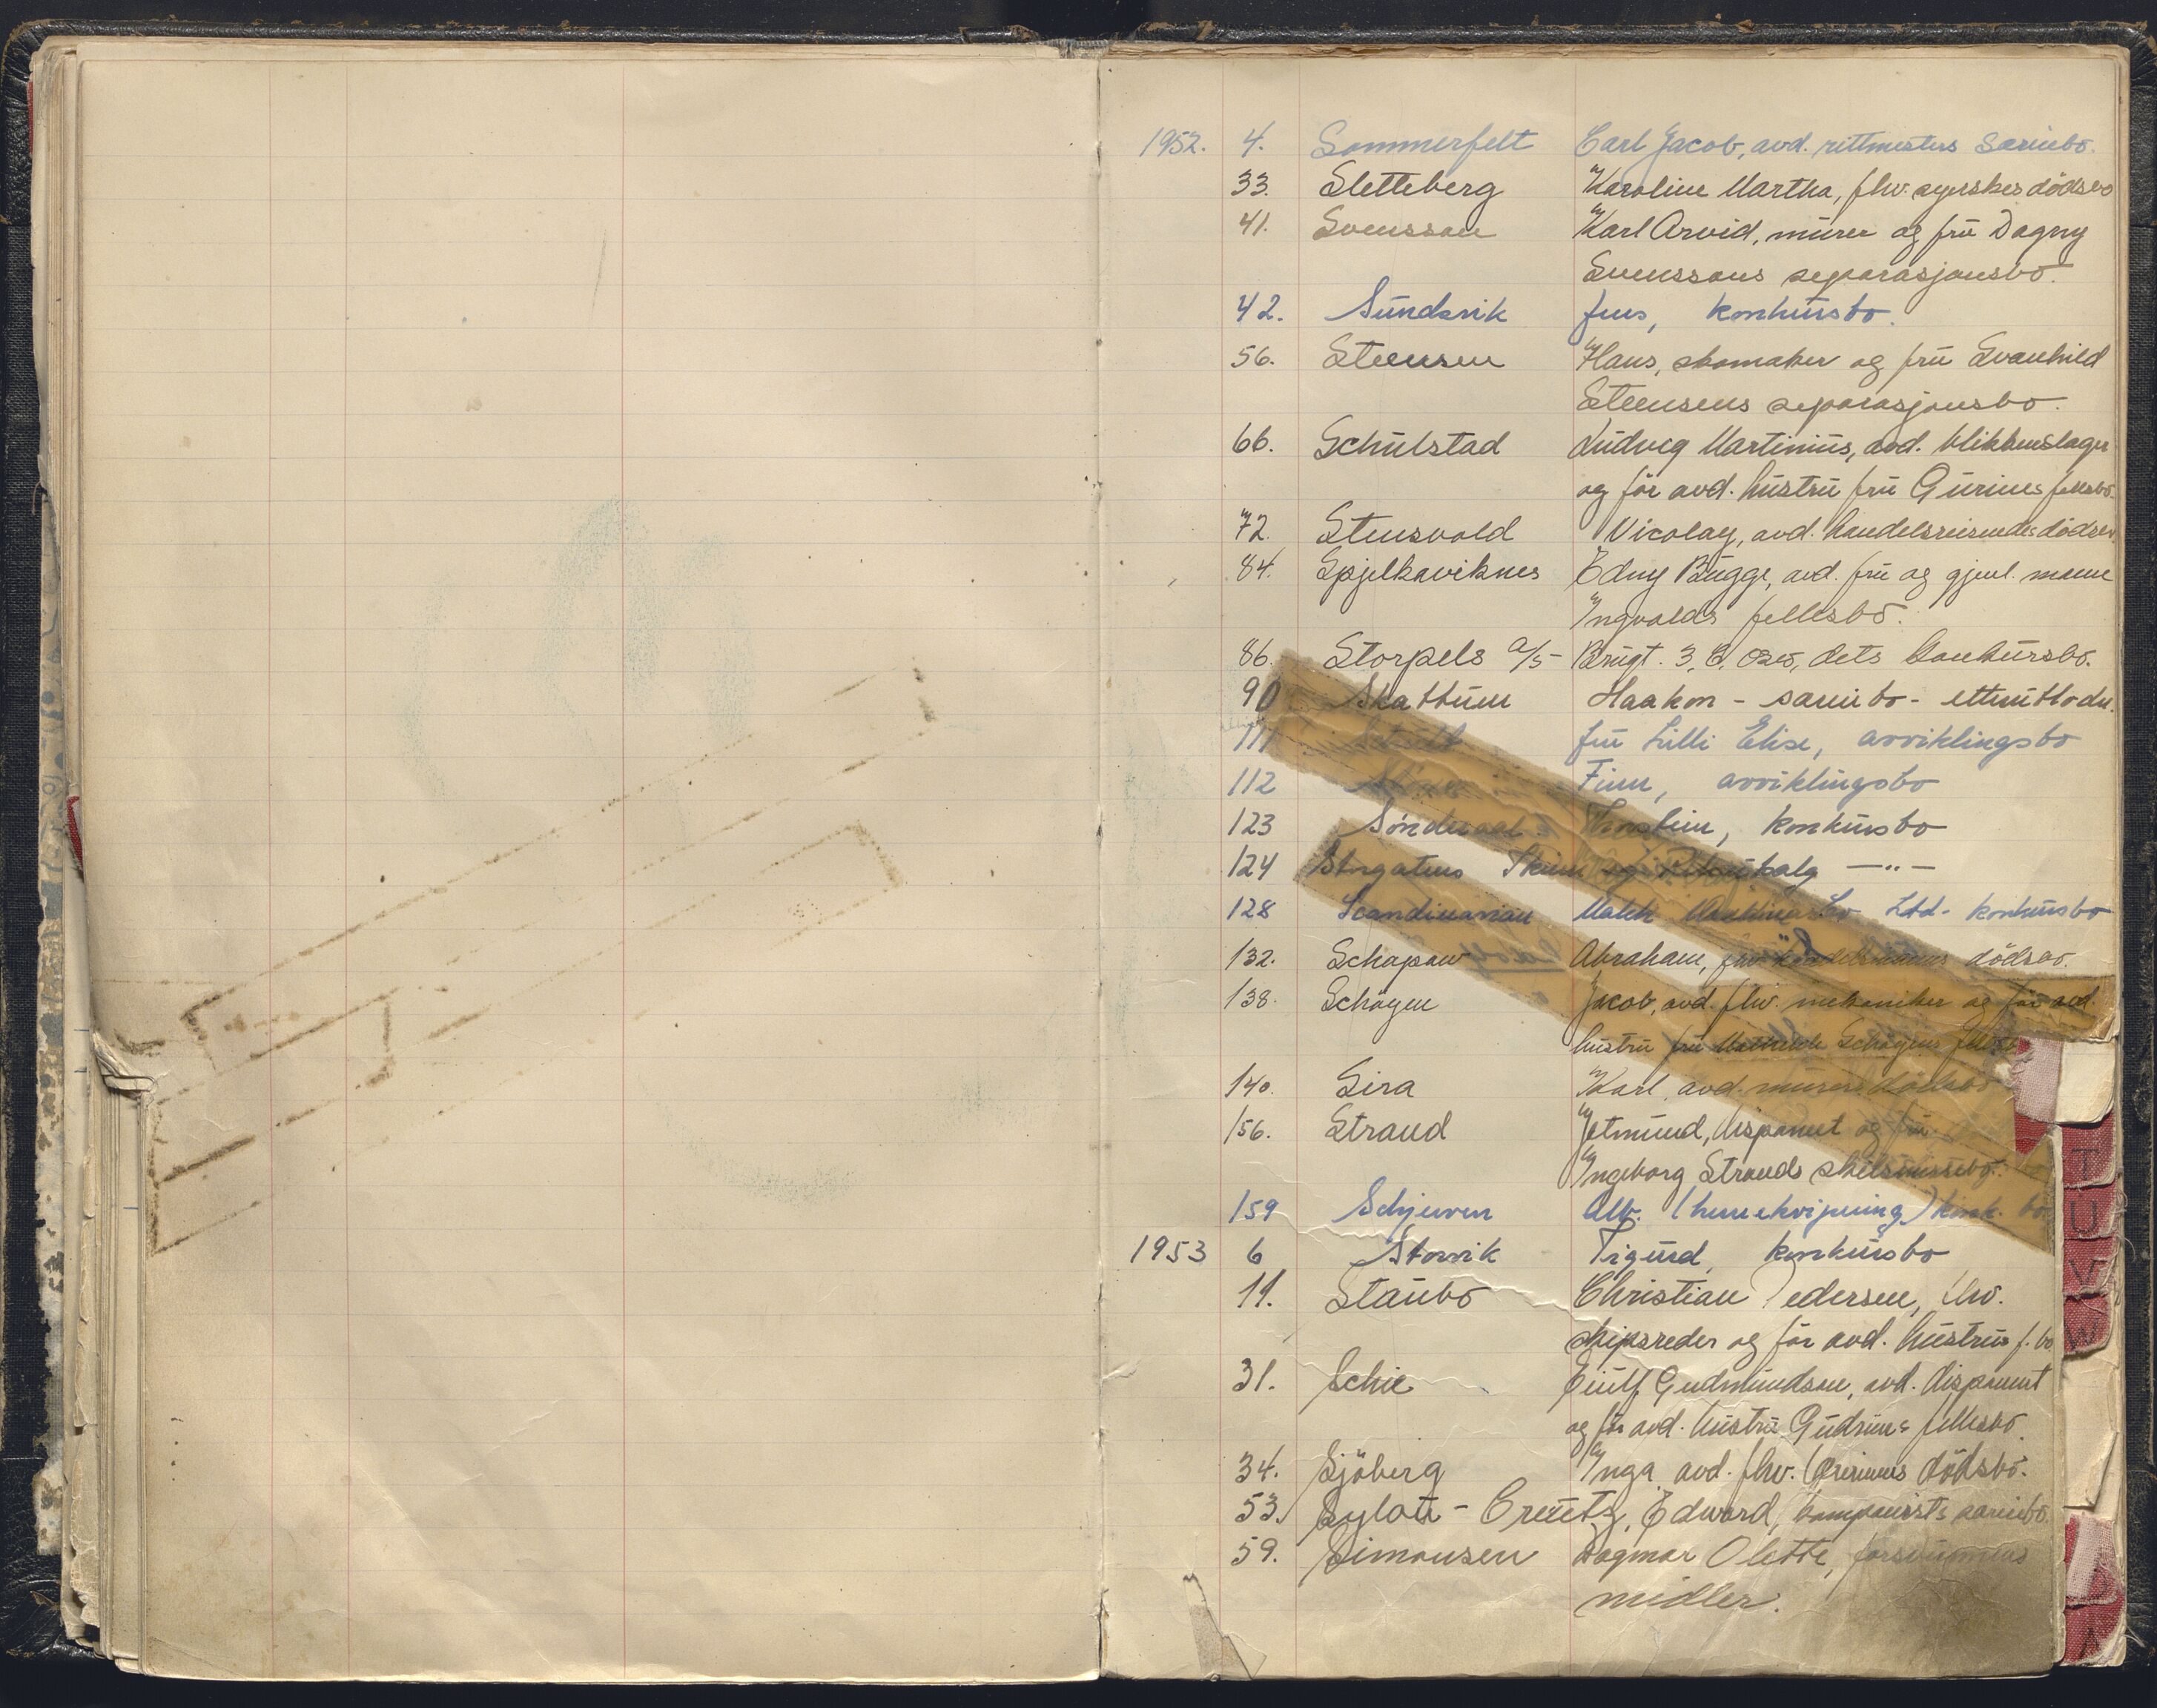 1952. 4. Sommerfelt Carl Jacob, avd. rittmesters særiebo.
33. Sletteberg Karoline Martha, fhv. syerskes dödsbo
41. Svensson Karl Arvid, murer og fru Dagny
Svenssons separasjonsbo.
42. Sundsvik Jens, konkursbo.
56. Steensen Hans, skomaker og fru Svanhild
Steensens separasjonsbo.
66. Schulstad Ludvig Martinius, avd. blikkenslager
og för avd. hustru fru Gurines fellesbo.
72. Stensvold Nicolay, avd. handelsreisendes dödsbo.
84. Spjelkaviknes Edny Bugge, avd. fru og gjenl. mann
Ingvalds fellesbo.
86. Storpels A/S Brugt. 3, Oslo, dets konkursbo.
90 Skattum Haakon - særiebo -
111 fru Lilli Elise, avviklingsbo
112 Finn, avviklingsbo
123 Thorstein, konkursbo
124 Storgatens Skinn og — " —
128 Scandinavian Ltd. konkursbo
132. Schapow Abraham, fhv. handelsmanns dödsbo.
138. Schøyen Jacob, avd. fhv. mekaniker og för avd.
hustru fru Mathilde Schøyens fellesbo
140. Sira Karl, avd. murers dödsbo
156. Strand Jetmund, disponent og fru
Ingeborg Strands skilsmissebo.
159 Schjerven Alb. (herreekvipering) konk. bo
1953 6 Storvik Sigurd, konkursbo
11. Staubo Christian Pedersen, fhv.
skipsreder og för avd. hustrus f. bo
31. Schie Eiulf Gudmundson, avd. disponent
og för avd. hustru Gudruns fellesbo.
34. Sjöberg Inga, avd. fhv. lærerinnes dödsbo.
53. Sylou-Creutz, Edward, komponists særiebo.
59. Simonsen Dagmar Olette, forsvunnens
midler.
T
U
V
W